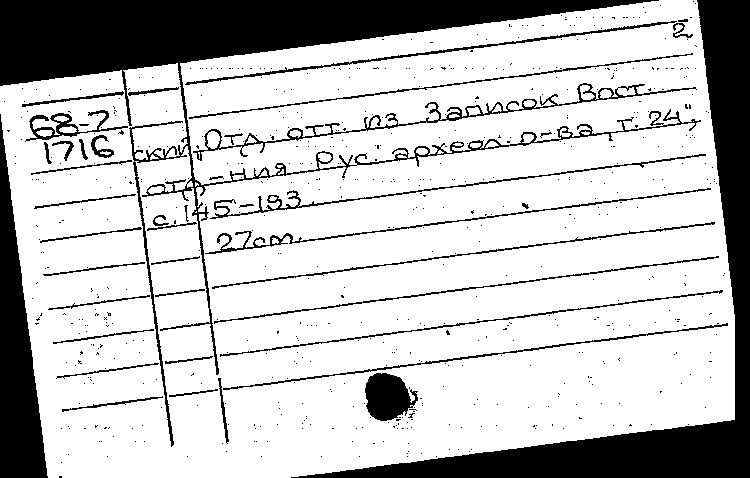 2
68-7
1716 ский, "Отд. отт. из Записок Вост.
отд-ния Рус. археол. о-ва, т. 24",
с. 145-193.
27cm.